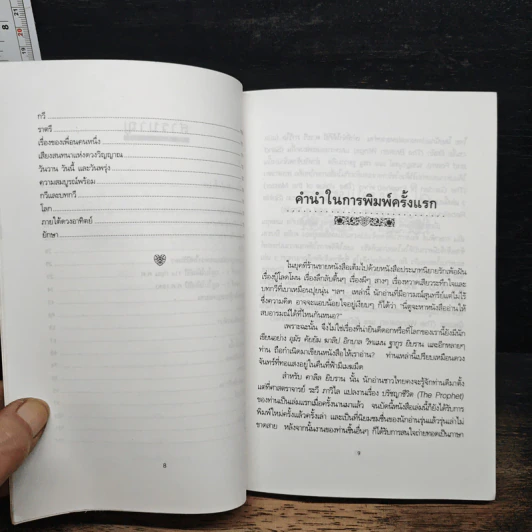 กวี
ราตรี
เรื่องของเพื่อนคนหนึ่ง
เสียงสนทนาแห่งดวงวิญญาณ
วันวาน วันนี้ และวันพรุ่ง
ความสมบูรณ์พร้อม
กวีและบทกวี
โลก
ภายใต้ดวงอาทิตย์
ยักษา
8
คำนำในการพิมพ์ครั้งแรก
ในยุคที่ร้านขายหนังสือเต็มไปด้วยหนังสือประเภทนิยายรักเพ้อฝัน
เรื่องบู๊โลดโผน เรื่องลึกลับตื้น ๆ เรื่องผีๆ สางๆ เรื่องหวาดเสียวระทึกใจและ
บทกวีที่เบาเหมือนปุยนุ่น ฯลฯ เหล่านี้ นักอ่านที่มีอารมณ์สุนทรีย์แต่ไม่ไร้
ซึ่งความคิด อาจจะแอบน้อยใจอยู่เงียบๆ ก็ได้ว่า "นี่ดูจะหาหนังสืออ่านให้
สบอารมณ์ได้ที่ไหนกันหนอ?"
เพราะฉะนั้น จึงไม่ใช่เรื่องที่น่ายินดีดอกหรือที่โลกของเรานี้ยังมีนัก
เขียนอย่าง อุมัร คัยยัม ฆาลิบ อิกบาล วิทแมน ฐากูร ยิบราน และอีกหลายๆ
ท่าน ถือกำเนิดมาเขียนหนังสือให้เราอ่าน? ท่านเหล่านี้เปรียบเหมือนดวง
จันทร์ที่ทอแสงอยู่ในคืนที่ฟ้ามืดมิด
สำหรับ คาลิล ยิบราน นั้น นักอ่านชาวไทยคงจะรู้จักท่านดีมาตั้ง
แต่ที่ศาสตราจารย์ ระวี ภาวิไล แปลงานเรื่อง ปรัชญาชีวิต (The Prophet)
ของท่านเป็นเล่มแรกเมื่อครั้งนานมาแล้ว จนบัดนี้หนังสือเล่มนี้ก็ยังได้รับการ
พิมพ์ใหม่ครั้งแล้วครั้งเล่า และเป็นที่นิยมชมชื่นของนักอ่านรุ่นแล้วรุ่นเล่าไม่
ขาดสาย หลังจากนั้นงานของท่านชิ้นอื่นๆ ก็ได้รับการสนใจถ่ายทอดเป็นภาษา
9